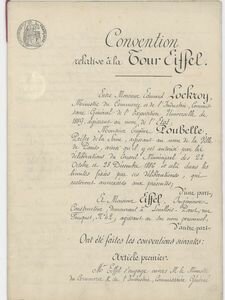 Convention
relative à la Tour Eiffel.
Entre Monsieur Edouard Lockroy,
Ministre du Commerce et de l'Industrie, Commis-
saire Général de l'Exposition Universelle de
1889, agissant au nom de l'Etat,
Monsieur Eugène Poubelle,
Préfet de la Seine, agissant au nom de la Ville
de Paris, ainsi qu'il y est autorisé par les
délibérations du Conseil Municipal des 22
Octobre et 2 Décembre 1886, et cela dans les
limites fixées par ces délibérations, qui
resteront annexées aux présentes,
D'une part,
Et Monsieur Eiffel, Ingénieur-
Constructeur, demeurant à Levallois-Perret, rue
Fouquet, agissant en son nom personnel,
D'autre part.
Ont été faites les conventions suivantes:
Article premier.
Mr Eiffel s'engage envers M. le Ministre
du Commerce & de l'Industrie, Commissaire Général